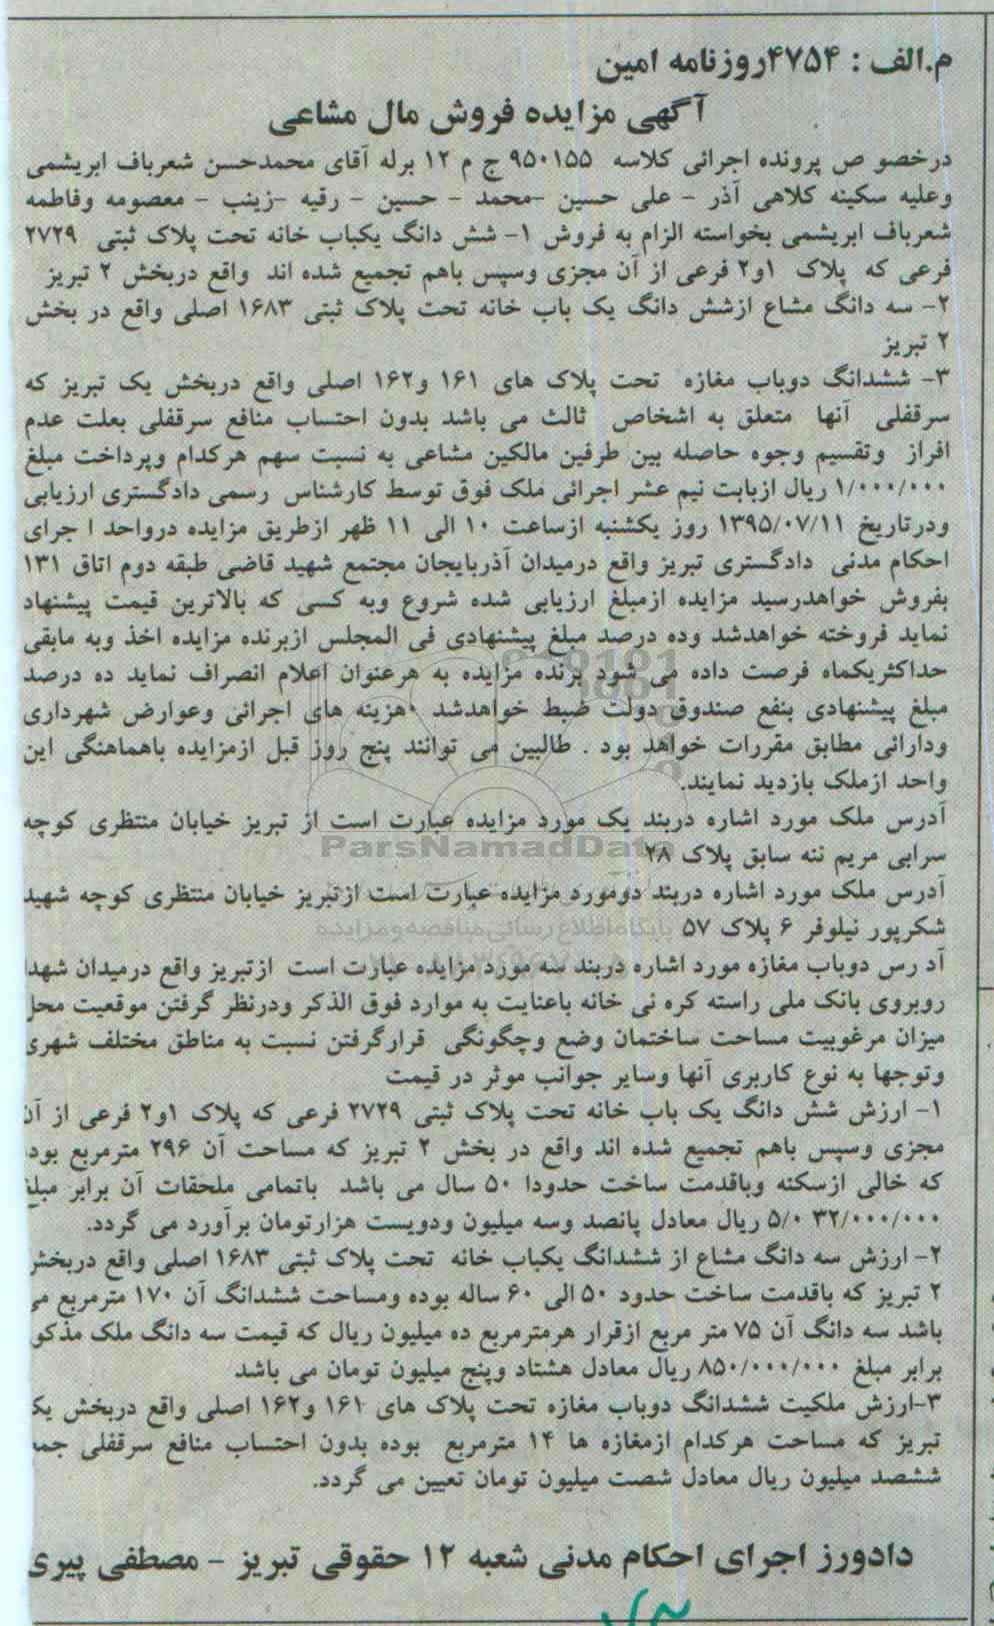 م.الف : ۴۷۵۴روزنامه امین
آگهی مزایده فروش مال مشاعی
درخصو ص پرونده اجرائی کلاسه ۹۵۰۱۵۵ ج م ۱۲ برله آقای محمدحسن شعرباف ابریشمی
وعلیه سکینه کلاهی آذر - علی حسین -محمد - حسین - رقیه -زینب - معصومه وفاطمه
شعرباف ابریشمی بخواسته الزام به فروش ۱- شش دانگ یکباب خانه تحت پلاک ثبتی ۲۷۲۹
فرعی که پلاک ۱و۲ فرعی از آن مجزی وسپس باهم تجمیع شده اند واقع دربخش ۲ تبریز
۲- سه دانگ مشاع ازشش دانگ یک باب خانه تحت پلاک ثبتی ۱۶۸۳ اصلی واقع در بخش
۲ تبریز
۳- ششدانگ دوباب مغازه تحت پلاک های ۱۶۱ و۱۶۲ اصلی واقع دربخش یک تبریز که
سرقفلی آنها متعلق به اشخاص ثالث می باشد بدون احتساب منافع سرقفلی بعلت عدم
افراز وتقسیم وجوه حاصله بین طرفین مالکین مشاعی به نسبت سهم هرکدام وپرداخت مبلغ
۱/۰۰۰/۰۰۰ ریال ازبابت نیم عشر اجرائی ملک فوق توسط کارشناس رسمی دادگستری ارزیابی
ودرتاریخ ۱۳۹۵/۰۷/۱۱ روز یکشنبه ازساعت ۱۰ الی ۱۱ ظهر ازطریق مزایده درواحد ا جرای
احکام مدنی دادگستری تبریز واقع درمیدان آذربایجان مجتمع شهید قاضی طبقه دوم اتاق ۱۳۱
بفروش خواهدرسید مزایده ازمبلغ ارزیابی شده شروع وبه کسی که بالاترین قیمت پیشنهاد
نماید فروخته خواهدشد وده درصد مبلغ پیشنهادی فی المجلس ازبرنده مزایده اخذ وبه مابقی
حداکثریکماه فرصت داده می شود برنده مزایده به هرعنوان اعلام انصراف نماید ده درصد
مبلغ پیشنهادی بنفع صندوق دولت ضبط خواهدشد .هزینه های اجرائی وعوارض شهرداری
ودارائی مطابق مقررات خواهد بود . طالبین می توانند پنج روز قبل ازمزایده باهماهنگی این
واحد ازملک بازدید نمایند.
آدرس ملک مورد اشاره دربند یک مورد مزایده عبارت است از تبریز خیابان منتظری کوچه
سرابی مریم ننه سابق پلاک ۲۸
ParsNamadData
آدرس ملک مورد اشاره دربند دومورد مزایده عبارت است ازتبریز خیابان منتظری کوچه شهید
شکرپور نیلوفر ۶ پلاک ۵۷
پایگاه اطلاع رسانی مناقصه ومزایده
آد رس دوباب مغازه مورد اشاره دربند سه مورد مزایده عبارت است ازتبریز واقع درمیدان شهدا
روبروی بانک ملی راسته کره نی خانه باعنایت به موارد فوق الذکر ودرنظر گرفتن موقعیت محل
میزان مرغوبیت مساحت ساختمان وضع وچگونگی قرارگرفتن نسبت به مناطق مختلف شهری
وتوجها به نوع کاربری آنها وسایر جوانب موثر در قیمت
۱- ارزش شش دانگ یک باب خانه تحت پلاک ثبتی ۲۷۲۹ فرعی که پلاک ۱و۲ فرعی از آن
مجزی وسپس باهم تجمیع شده اند واقع در بخش ۲ تبریز که مساحت آن ۲۹۶ مترمربع بود
که خالی ازسکنه وباقدمت ساخت حدودا ۵۰ سال می باشد باتمامی ملحقات آن برابر مبلغ
۵/۰ ۳۲/۰۰۰/۰۰۰ ریال معادل پانصد وسه میلیون ودویست هزارتومان برآورد می گردد.
۲- ارزش سه دانگ مشاع از ششدانگ یکباب خانه تحت پلاک ثبتی ۱۶۸۳ اصلی واقع دربخش
۲ تبریز که باقدمت ساخت حدود ۵۰ الی ۶۰ ساله بوده ومساحت ششدانگ آن ۱۷۰ مترمربع می
باشد سه دانگ آن ۷۵ متر مربع ازقرار هرمترمربع ده میلیون ریال که قیمت سه دانگ ملک مذکو
برابر مبلغ ۸۵۰/۰۰۰/۰۰۰ ریال معادل هشتاد وپنج میلیون تومان می باشد
۳-ارزش ملکیت ششدانگ دوباب مغازه تحت پلاک های ۱۶۱ و۱۶۲ اصلی واقع دربخش یک
تبریز که مساحت هرکدام ازمغازه ها ۱۴ مترمربع بوده بدون احتساب منافع سرقفلی جمع
ششصد میلیون ریال معادل شصت میلیون تومان تعیین می گردد.
دادورز اجرای احکام مدنی شعبه ۱۲ حقوقی تبریز - مصطفی پیری